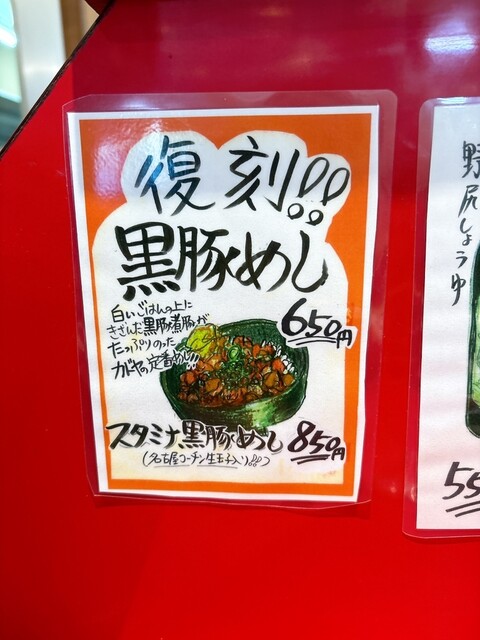 復刻!!
黒豚めし
650円
白いごはんの上に
きざんだ黒豚煮豚が
たっぷりのった
ガヤの定番めし!!
スタミナ黒豚めし 850円
(名古屋コーチン生玉子入り!!)
野尻しょうゆ
55